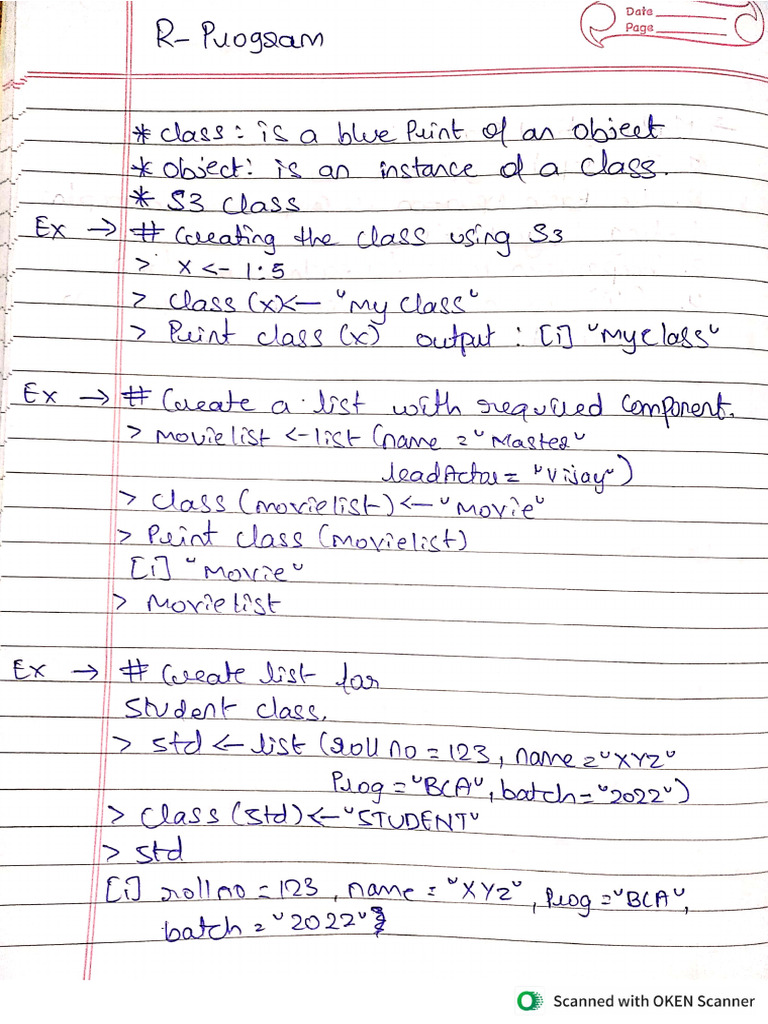 R- Program
Date
Page
* class: is a blue Print of an object
* object: is an instance of a class.
* S3 class
Ex → # Creating the class using S3
> x <- 1:5
> class (x)<— "My class"
> Print class (x) output : [1] "Myclass"
Ex → # Create a list with required component.
> movielist <-list (name = "Master"
leadActor = "Vijay")
> class (movielist) <— "Movie"
> Print class (movielist)
[1] "Movie"
> Movielist
Ex → # Create list for
Student class.
> std <— list (roll no = 123, name = "XYZ"
Prog = "BCA", batch = "2022")
> class (std) <— "STUDENT"
> std
[1] roll no = 123, name = "XYZ", Prog = "BCA",
batch = "2022"}
Scanned with OKEN Scanner